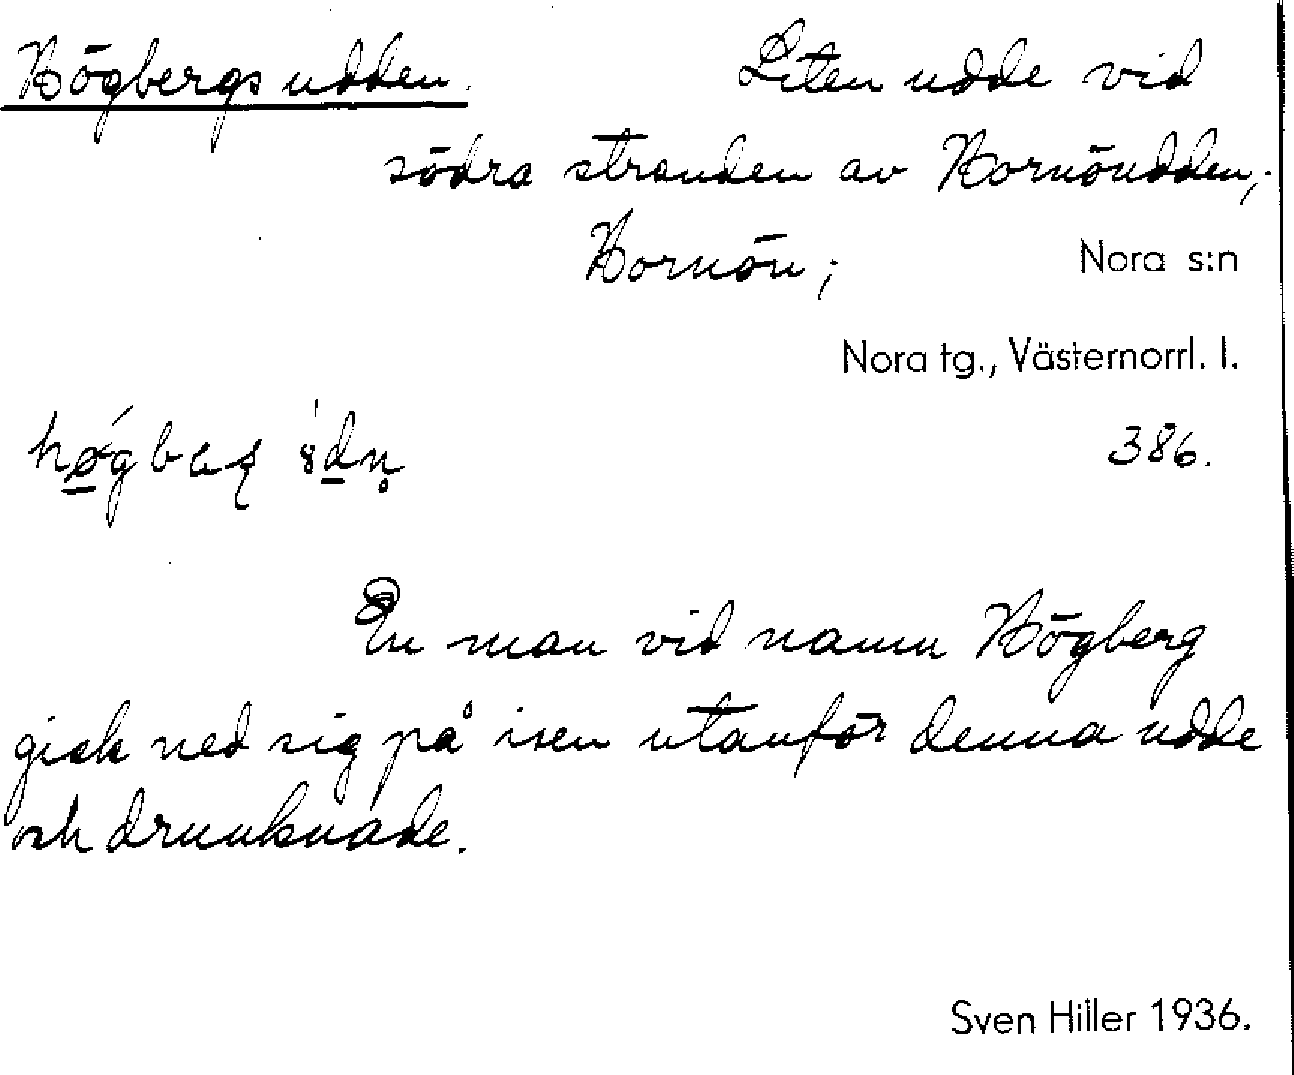 Högbergsudden. Liten udde vid
södra stranden av Hornöudden,
Hornön; Nora s:n
Nora tg., Västernorrl. l.
386.
En man vid namn Högberg
gick ned sig på isen utanför denna udde
och drunknade.
Sven Hiller 1936.